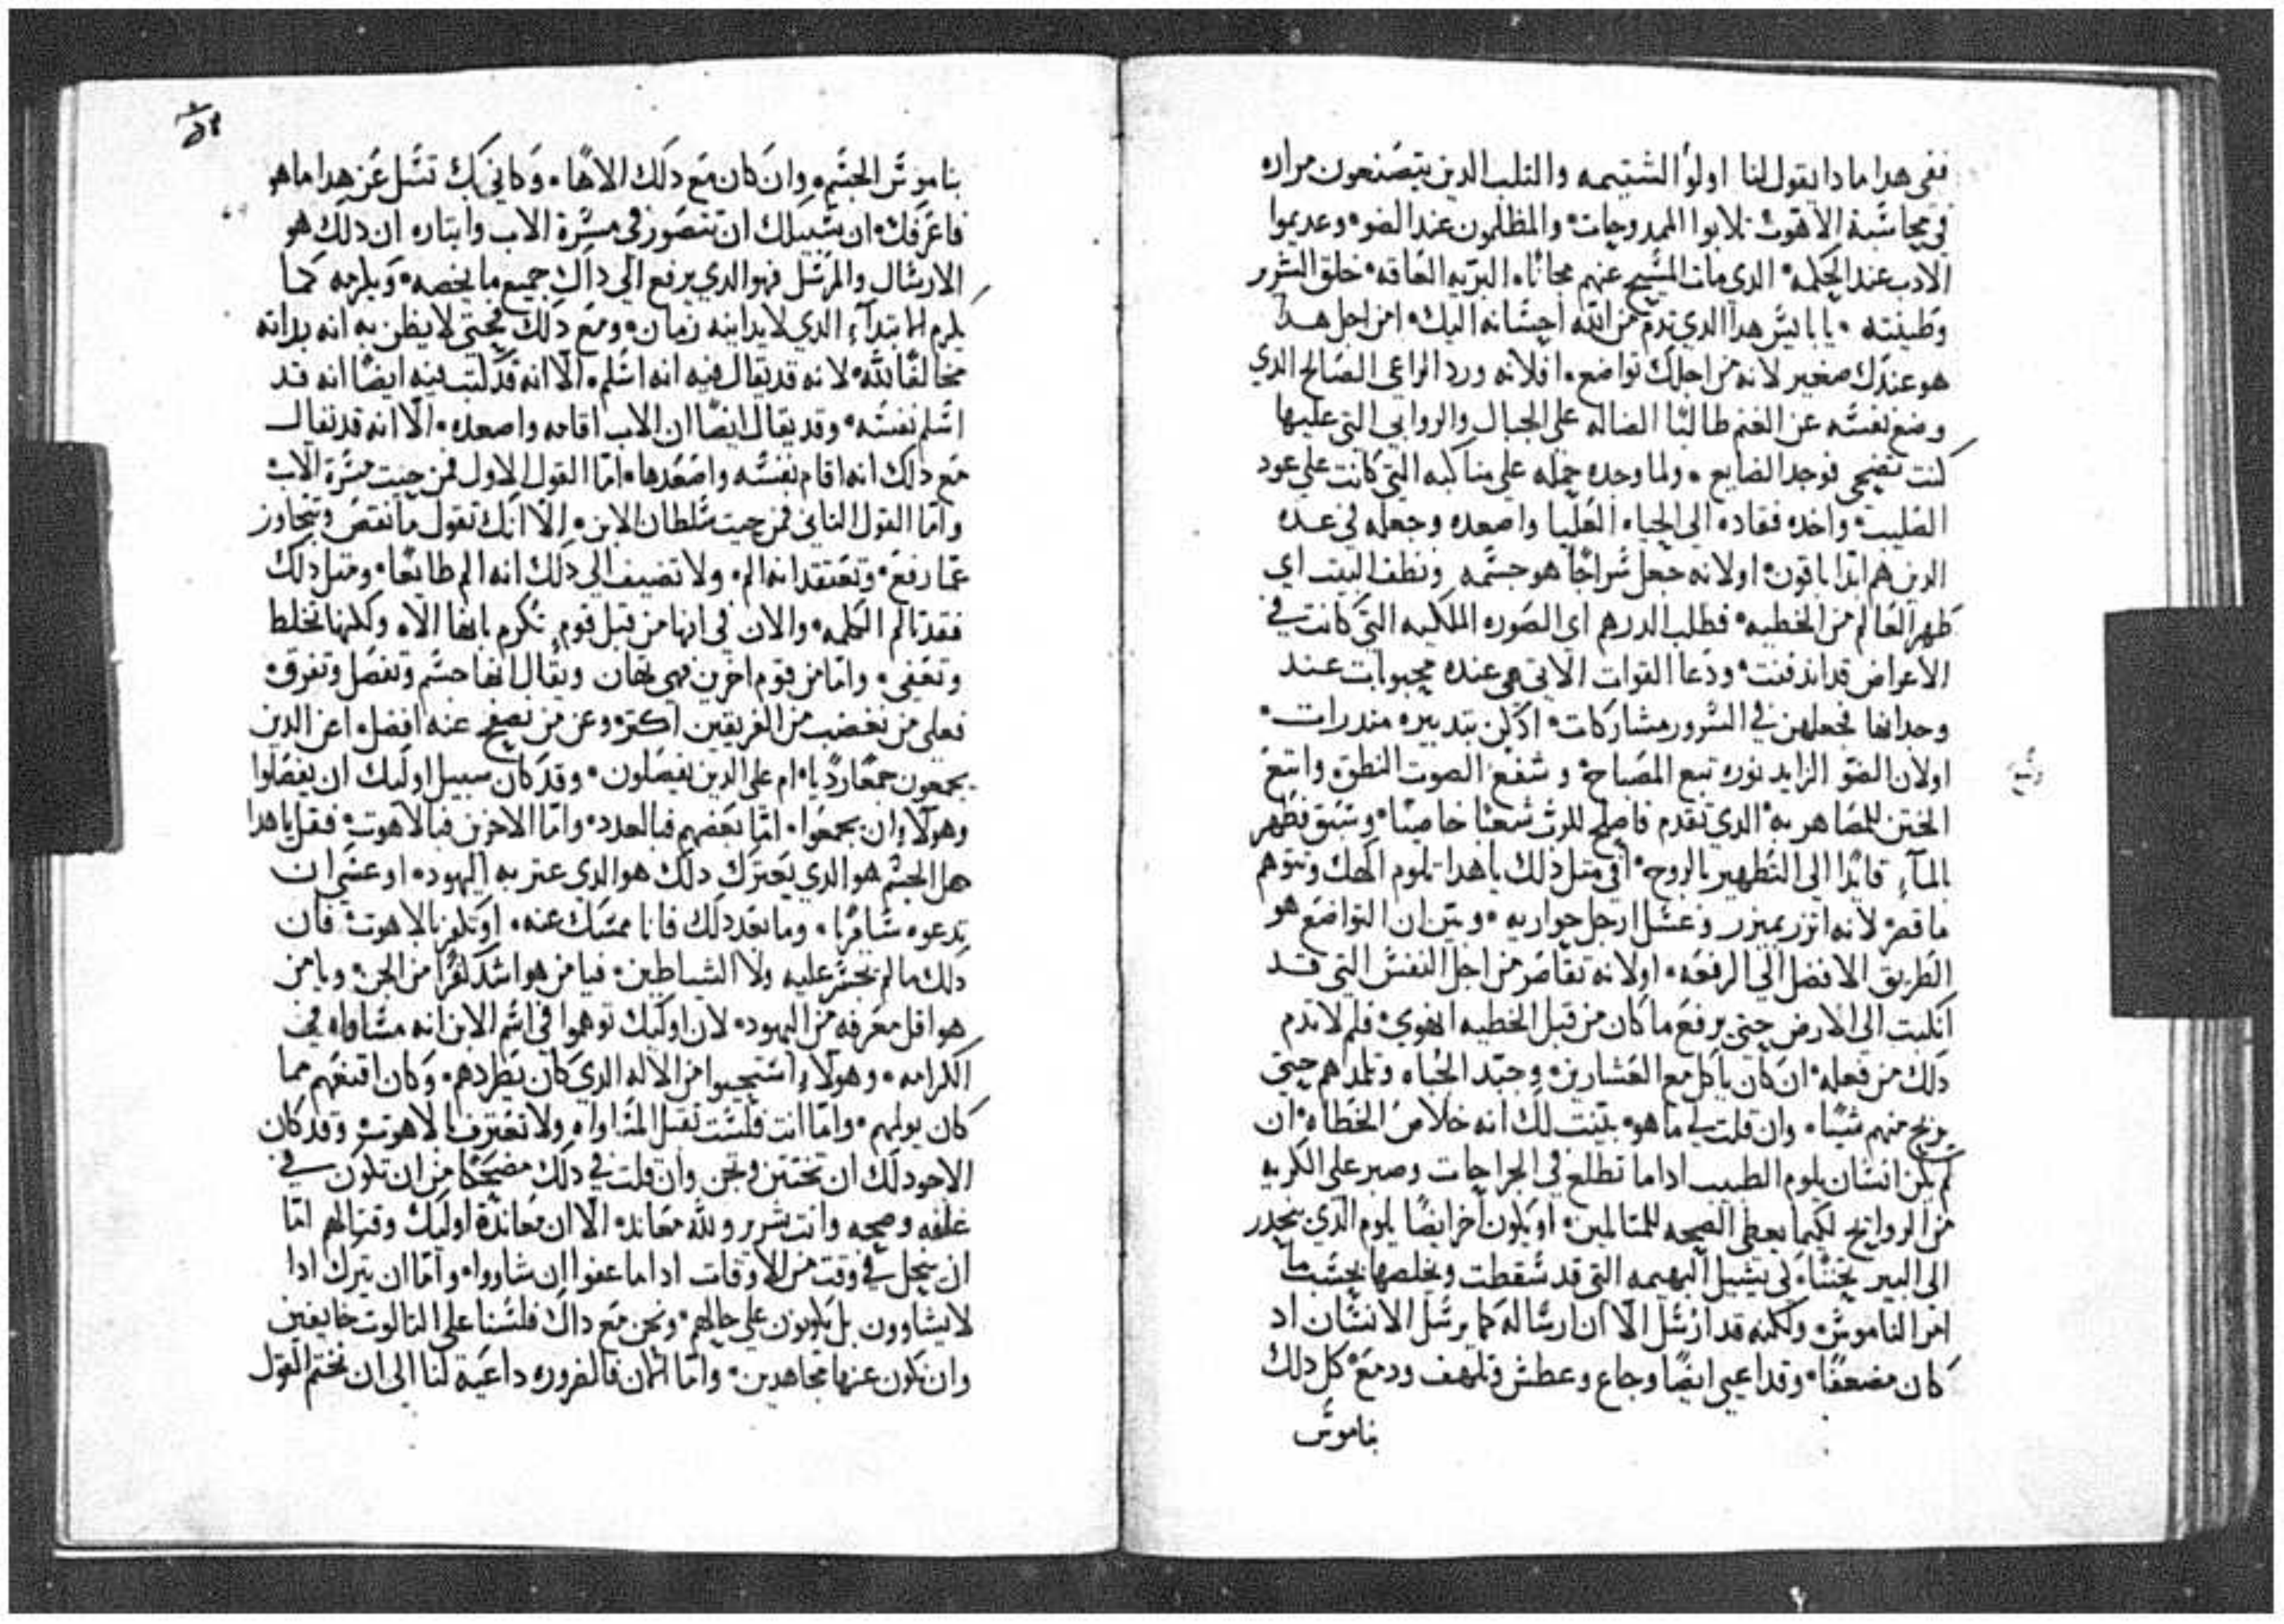 ففى هدا مادا يقول لنا اولو الشتيمه والثلب الدين يتصنعون مراره
فى محاسبة الاهوت تلابوا الممدوحات والمظلمون عند الضو وعديموا
الادب عند الحكمه الدي مات المسيح عنهم مجانًا البريه العاقه خلق الشرير
وطينته يا باليس هدا الدي تدم من الله احسانه اليك امن اجل هدا
هو عندك صغير لانه من اجلك تواضع افلانه ورد الراعى الصالح الدي
وضع نفسه عن الغنم طالبًا الضاله على الجبال والروابي التى عليها
كنت تضحى فوجد الضايع ولما وجده حمله على مناكبه التى كانت على عود
الصليب واخده فقاده الى الحياه العليا واصعده وجعله فى عده
الدين هم ابدًا باقون اولانه جعل سراجًا هو جسمه ونظف البيت اي
طهر العالم من الخطيه فطلب الدرهم اي الصوره الملكيه التى كانت في
الاعراض قد اندفنت ودعا القوات الاتى هى عنده محبوبات عند
وجدانها فجعلهن في السرور مشاركات ادكن بتدبيره مندرات
اولان الضو الزايد نوره تبع المصباح وشفع الصوت النطق واتبع
وشع
الختن للمصاهر به الدي تقدم فاصلح للرب شعبًا خاصيًا وسبق فطهر
بالماء قايدًا الى التطهير بالروح افى مثل دلك يا هدا تلوم الاهك وتتوهم
ما قص لانه اتزر بميزر وغسل ارجل حواريه وبين ان التواضع هو
الطريق الافضل الى الرفعه اولانه تقاصر من اجل النفس التي قد
انكبت الى الارض حتى يرفع ما كان من قبل الخطيه الهوي فلم لا تدم
دلك من فعله ان كان ياكل مع العشارين وجيد الجباه وتلمدهم حيتى
يربح منهم شيًا وان قلت لي ما هو بينت لك انه خلاص الخطاه ان
لم يكن انسان يلوم الطبيب ادا ما تطلع فى الجراحات وصبر على الكريه
من الروايح لكيما يعطى الصحه للمتالمين او يكون اخر ايضًا يلوم الدي ينحدر
الى البير تحننًا لي ينشيل البهيمه التى قد سقطت ويخلصها بحسب ما
امر الناموس ولكنه قد ارسل الا ان ارساله كما يرسل الانسان اد
كان مضعفًا وقد اعيى ايضًا وجاع وعطش وتلهف ودمع كل دلك
بناموس
بناموس الجسم وان كان مع دلك الاهًا وكاني بك تسل عن هدا ما هو
فاعرفك ان سبيلك ان تتصور فى مسرة الاب وايتاره ان دلك هو
الارسال والمرسل فهو الدي يرفع الى داك جميع ما يخصه ويلزمه كما
يلزم الابتداء الدي لا يداينه زمان ومع دلك فحتى لا يظن به انه بداته
مخالفًا لله لانه قد يقال فيه انه اسلم الا انه قد كتب فيه ايضًا انه قد
اسلم نفسه وقد يقال ايضًا ان الاب اقامه واصعده الا انه قد يقال
مع دلك انه اقام نفسه واصعدها اما القول الاول فمن حيت مسرة الاب
واما القول التانى فمن حيت سلطان الابن الا انك تقول ما نقص وتتجاوز
عما رفع وتعتقد انه الم ولا تضيف الى دلك انه الم طايعًا ومثل دلك
فقد تالم الكلمه والان فى انها من قبل قوم تكرم بانها الاه وكلها تخلط
وتعفى واما من قوم اخرين فهى تهان ويقال انها جسم وتفصل وتفرق
فعلى من تغضب من الفريقين اكتر وعن من تصفح عنه افضل اعن الدين
يجمعون جمعًا رديًا ام على الدين يفصلون وقد كان سبيل اوليك ان يفصلوا
وهولاء ان يجمعوا اما بعضهم فبالعدد واما الاخرين فبالاهوت فقل يا هدا
هل الجسم هو الدي يعترك دلك هو الدي عتر به اليهود او عسى ان
تدعوه سامريًا وما بعد دلك فانا ممسك عنه او تكفر بالاهوت فان
دلك ما لم تجسر عليه ولا الشياطين فيا من هو اشد كفرًا من الجن ويا من
هو اقل معرفه من اليهود لان اوليك توهموا فى اسم الابن انه مساواه فى
الكرامه وهولاء استجيبوا من الاله الدي كان يطردهم وكان اقنعهم مما
كان يولمهم واما انت فلست تقبل المساواه ولا تعترف بالاهوت وقد كان
الاجود لك ان تختتن وتجن وان قلت في دلك مضحكًا من ان تكون في
غلفه وصحه وانت شرير ولله معانده الا ان معاندة اوليك وقتالهم اما
ان ينحل في وقت من الاوقات ادا ما عفوا ان شاروا واما ان يترك ادا
لا يشاوون بل يلبتون على حالهم ونحن مع داك فلسنا على التالوت خايفين
وان نكون عنها مجاهدين واما الان فالضروره داعية لنا الى ان نختم القول